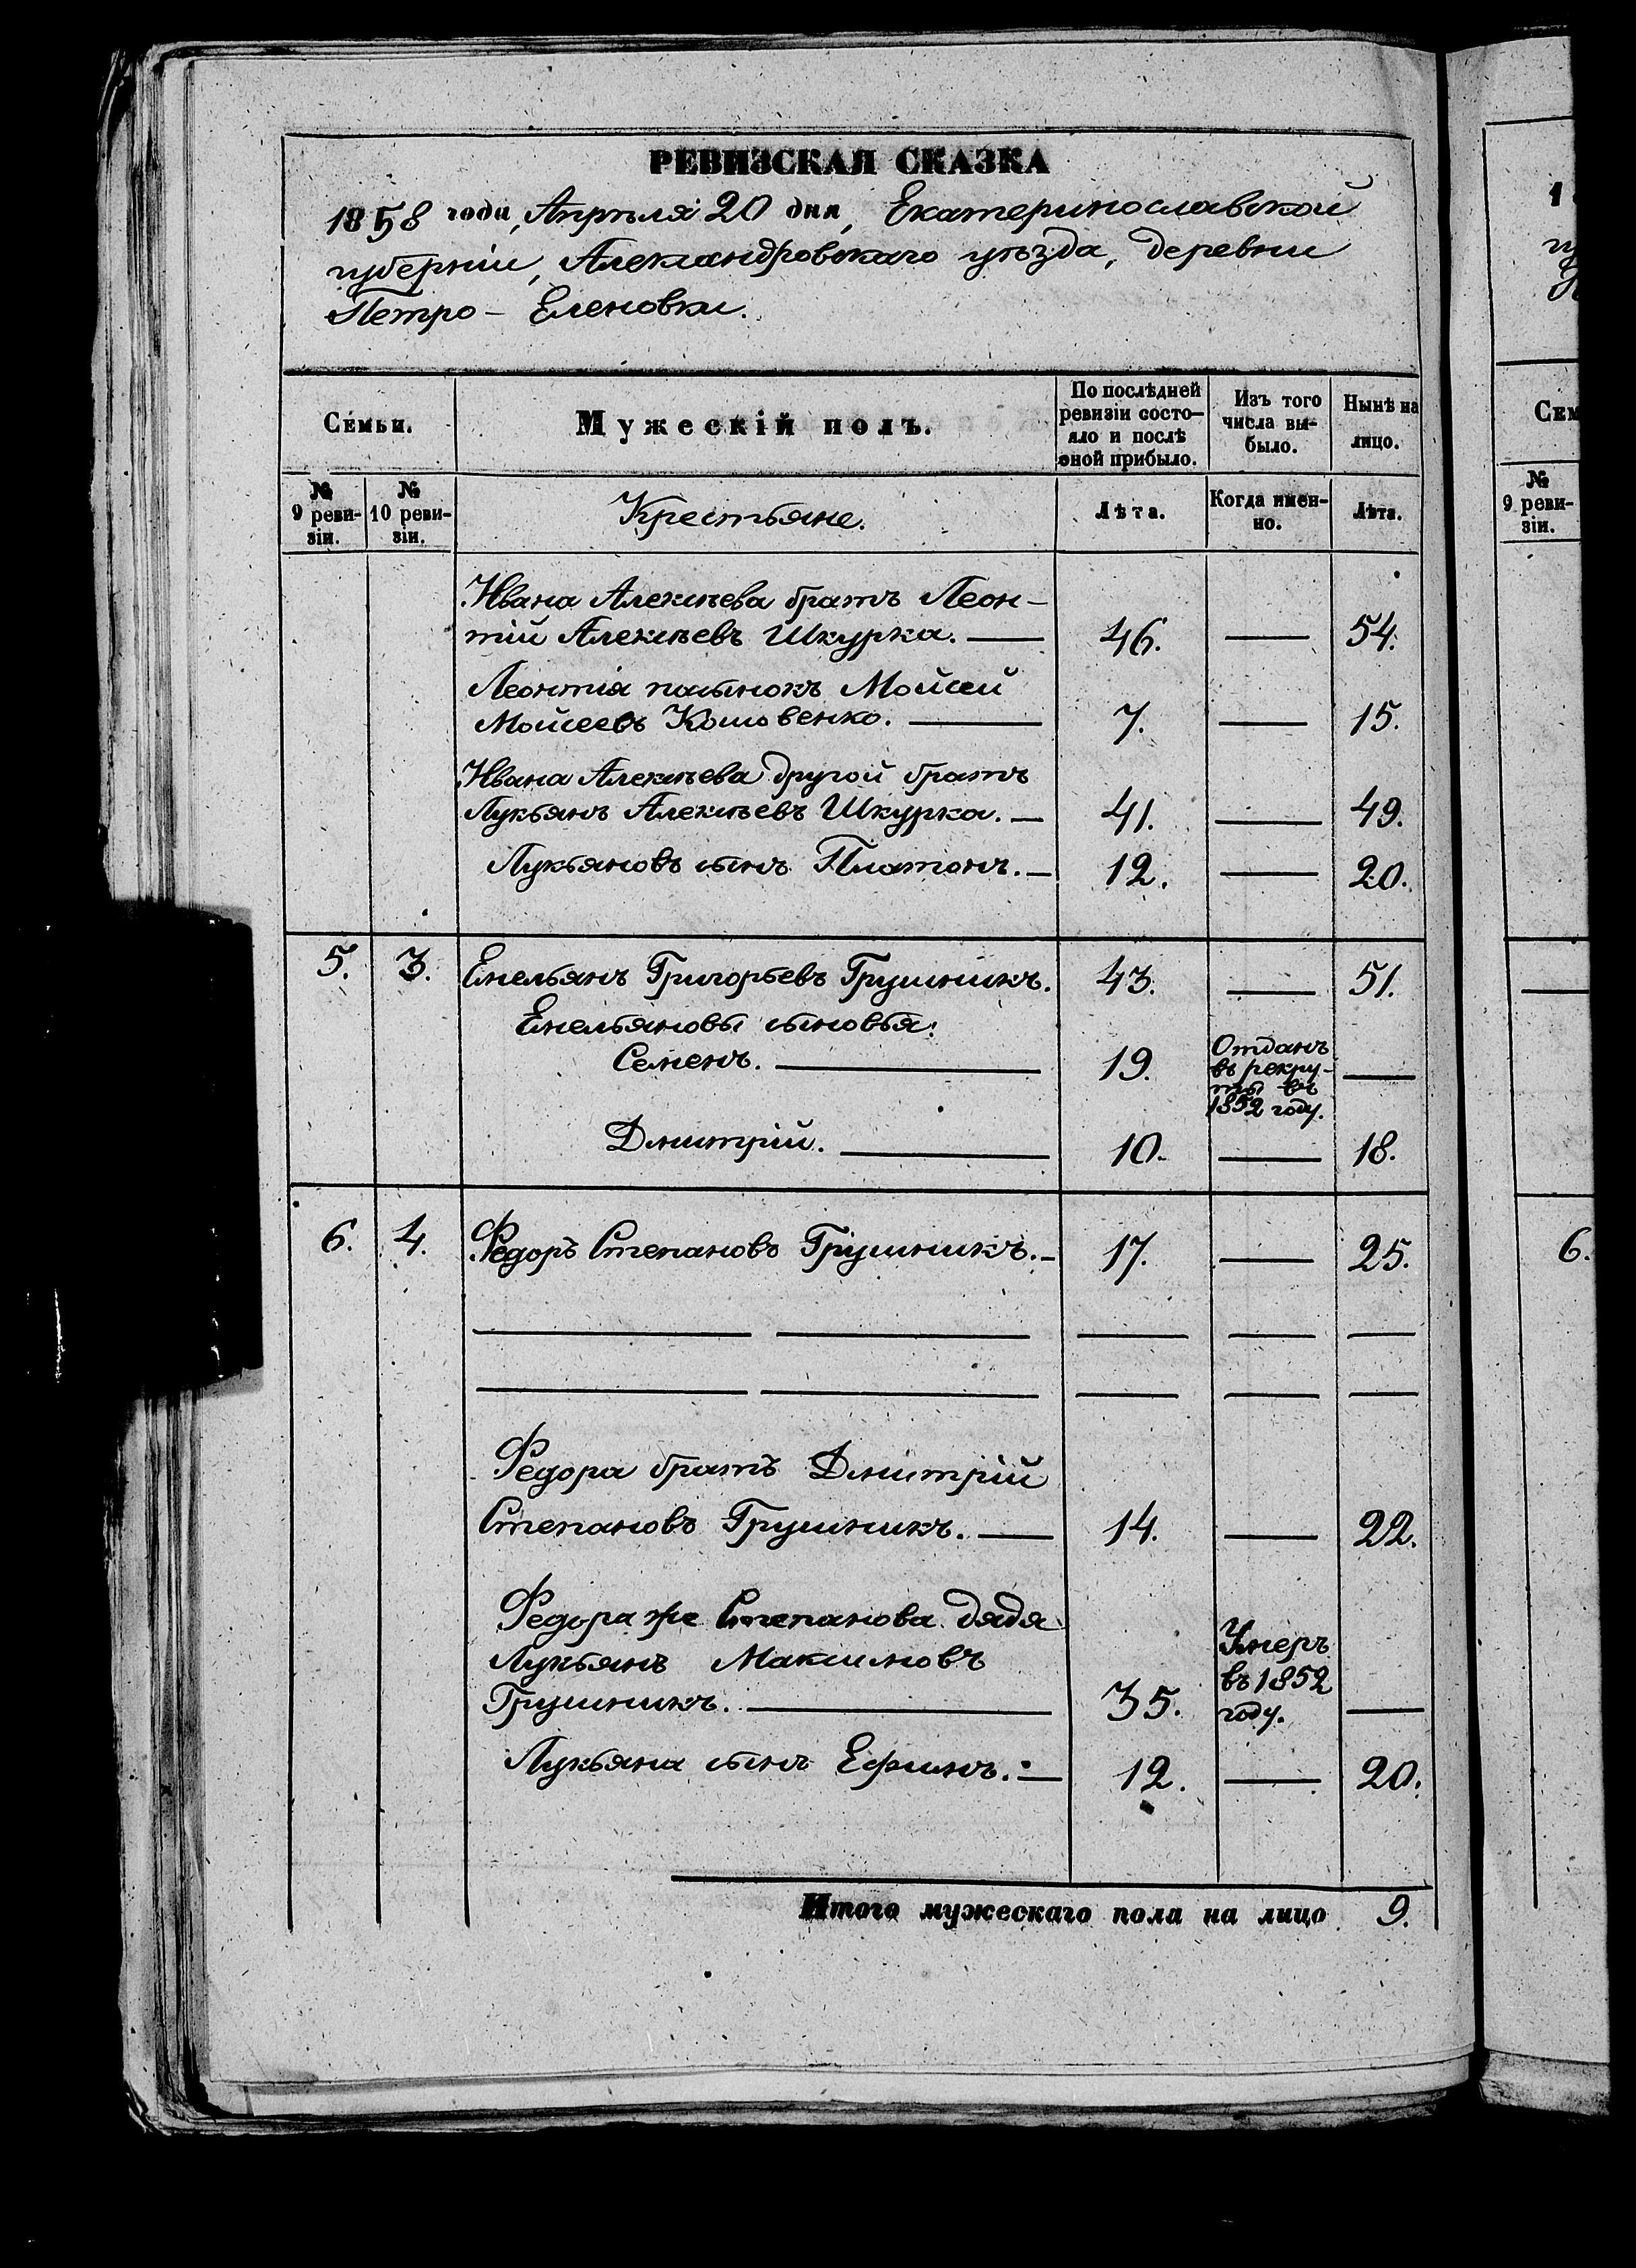 РЕВИЗСКАЯ СКАЗКА
1858 года, Апрѣля 20 дня, Екатеринославской
губерніи, Александровскаго уѣзда, деревни
Петро-Еленовки.
Семьи.
Мужескій полъ.
По послѣдней ревизіи состо-
яло и послѣ оной прибыло.
Изъ того числа вы-
было.
Нынѣ на лицо.
№ 9 реви-
зіи.
№ 10 реви-
зіи.
Крестьяне.
Лѣта.
Когда имен-
но.
Лѣта.
Ивана Алексѣева братъ Леон-
тій Алексѣевъ Шкурка. — 46. — 54.
Леонтія пасынокъ Мойсей
Мойсеевъ Кошовенко. — 7. — 15.
Ивана Алексѣева другой братъ
Лукьянъ Алексѣевъ Шкурка. — 41. — 49.
Лукьяновъ сынъ Платонъ. — 12. — 20.
5. 3. Емельянъ Григорьевъ Грушникъ. 43. — 51.
Емельяновы сыновья:
Семенъ. — 19. Отданъ
въ рекру-
ты въ
1852 году. —
Дмитрій. — 10. — 18.
6. 4. Федоръ Степановъ Грушникъ. — 17. — 25.
Федора братъ Дмитрій
Степановъ Грушникъ. — 14. — 22.
Федора же Степанова дядя
Лукьянъ Максимовъ
Грушникъ. — 35. Умеръ
въ 1852
году. —
Лукьяна сынъ Ефимъ. — 12. — 20.
Итого мужескаго пола на лицо 9.
Сем
№ 9 реви-
зіи.
6.